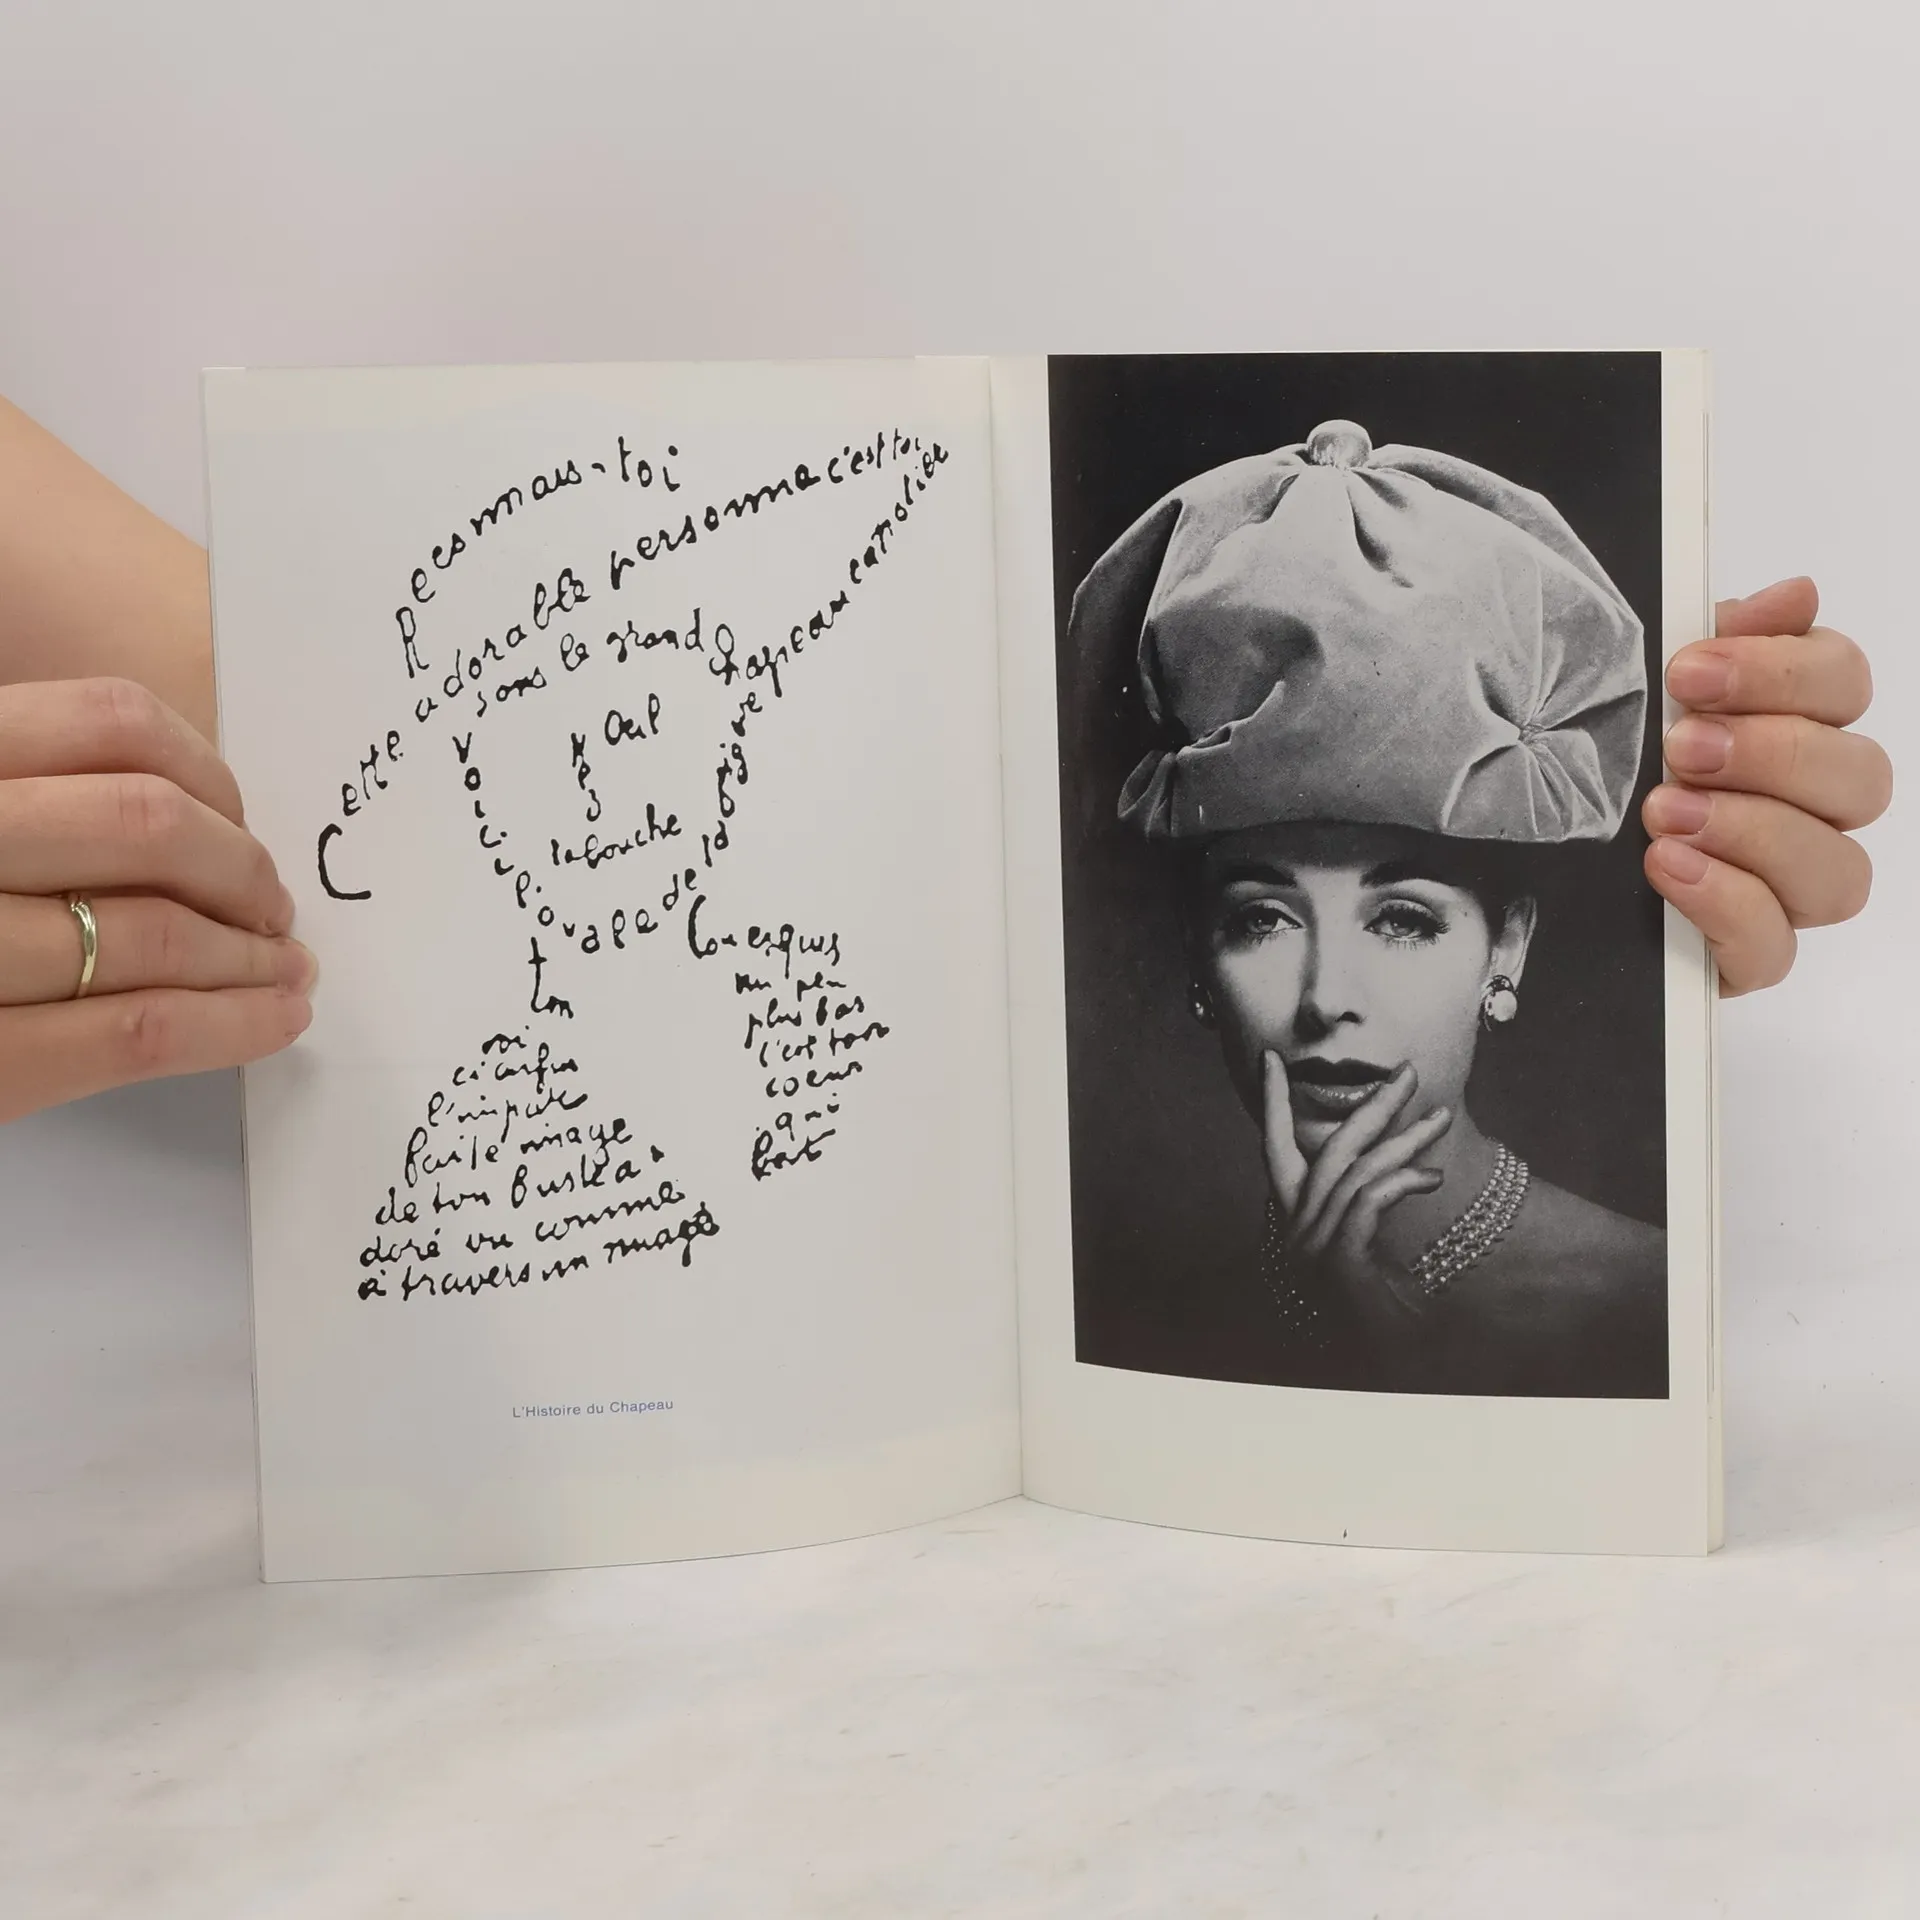 Reconnais-toi
Cette adorable personne c'est toi
sous le grand chapeau canotier
Oeil
Nez
la bouche
Voici l'ovale de ta figure
ton
Lou
un peu
plus bas
c'est ton
coeur
qui
bat
ci enfin
l'imparfaite image
de ton buste a
doré vu comme
à travers un nuage
L'Histoire du Chapeau